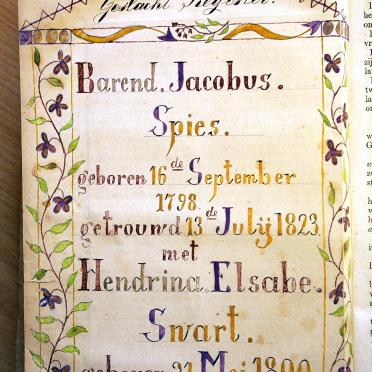 Geslacht Register.
Barend. Jacobus.
Spies.
geboren 16de September
1798.
getrouwd 13de Julij 1823.
met
Hendrina. Elsabe.
Swart.
geboren 21 Mei 1800